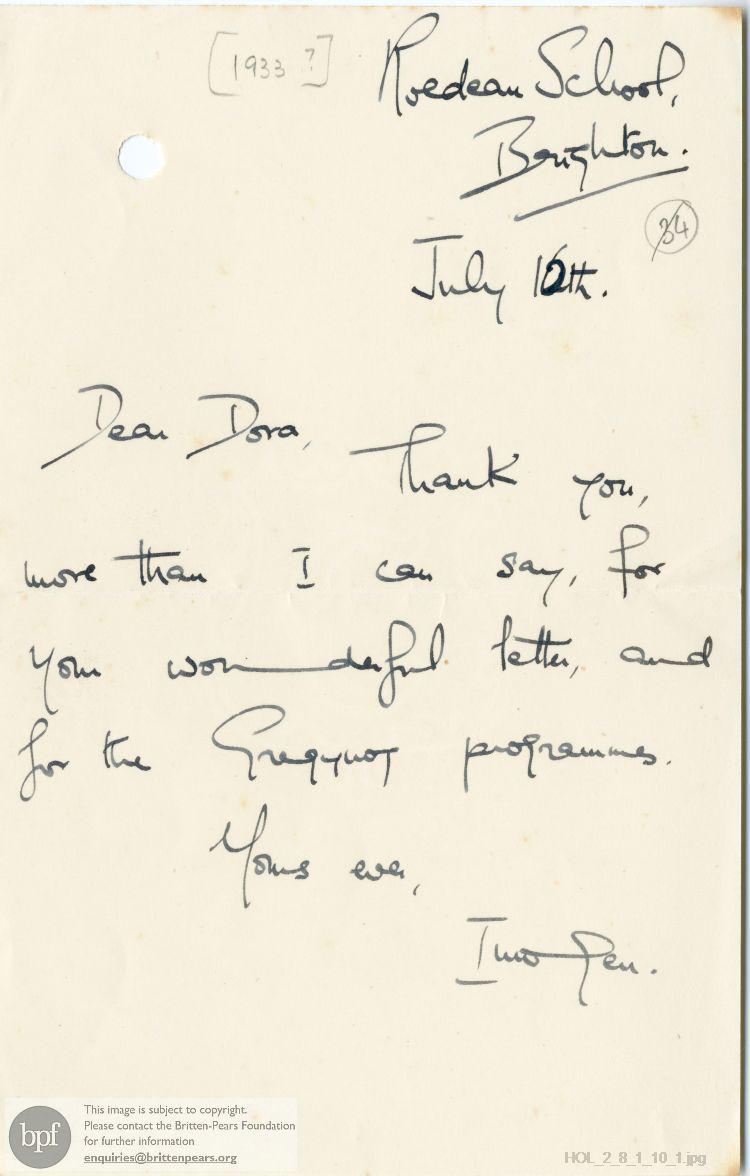 [1933 ?]
Roedean School,
Brighton.
34
July 12th.
Dear Dora,
Thank you,
more than I can say, for
your wonderful letter, and
for the Gregynog programmes.
Yours ever,
Imogen.
bpf
This image is subject to copyright.
Please contact the Britten-Pears Foundation
for further information
enquiries@brittenpears.org
HOL_2_8_1_10_1.jpg